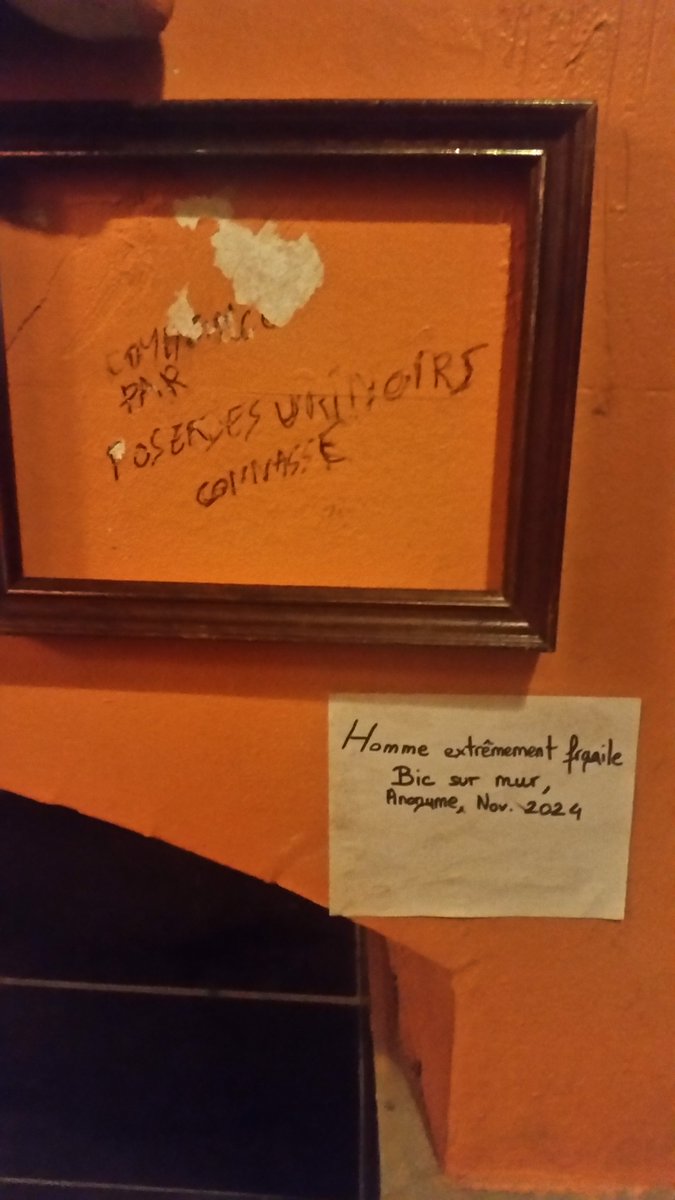 PAR
POSER DES URINOIRS
CONNASSE
Homme extrêmement fragile
Bic sur mur,
Anonyme, Nov. 2024